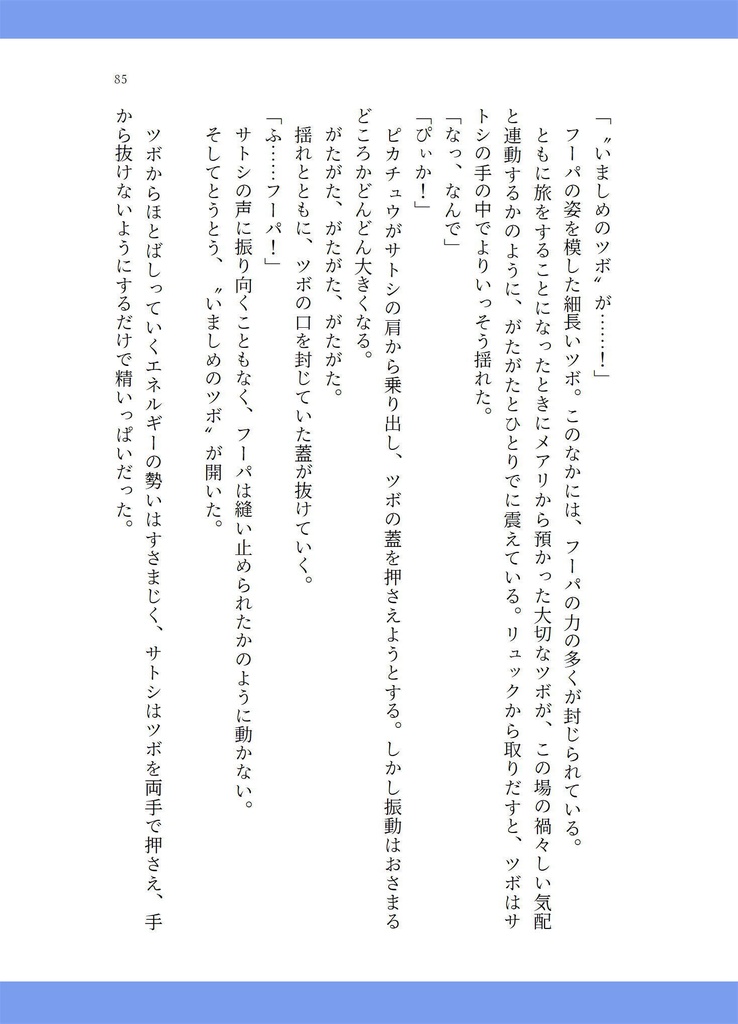 85
「〝いましめのツボ〟が……！」
フーパの姿を模した細長いツボ。このなかには、フーパの力の多くが封じられている。
ともに旅をすることになったときにメアリから預かった大切なツボが、この場の禍々しい気配
と連動するかのように、がたがたとひとりでに震えている。リュックから取りだすと、ツボはサ
トシの手の中でよりいっそう揺れた。
「なっ、なんで」
「ぴぃか！」
ピカチュウがサトシの肩から乗り出し、ツボの蓋を押さえようとする。しかし振動はおさまる
どころかどんどん大きくなる。
がたがた、がたがた、がたがた。
揺れとともに、ツボの口を封じていた蓋が抜けていく。
「ふ……フーパ！」
サトシの声に振り向くこともなく、フーパは縫い止められたかのように動かない。
そしてとうとう、〝いましめのツボ〟が開いた。
ツボからほとばしっていくエネルギーの勢いはすさまじく、サトシはツボを両手で押さえ、手
から抜けないようにするだけで精いっぱいだった。